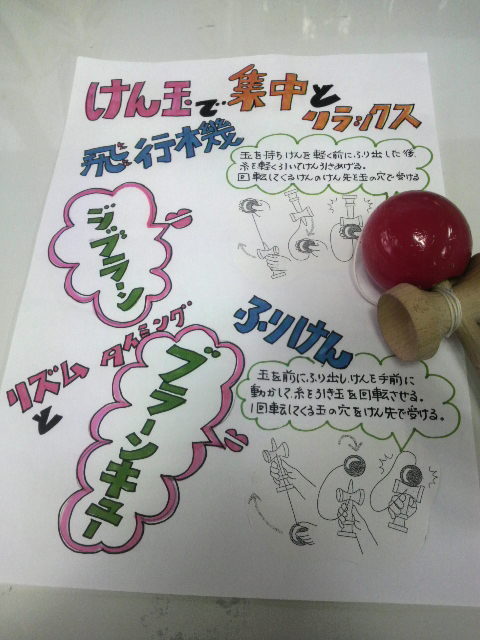 けん玉で集中と
リラックス
飛行機
玉を持ちけんを軽く前にふり出した後、
糸を軽く引いてけん引きあげる。
回転してくるけんのけん先を玉の穴で受ける
ジブラーン
ふりけん
リズム
と
タイミング
ブラーンキュー
玉を前にふり出し、けんを手前に
動かして、糸を引き玉を回転させる。
1回転してくる玉の穴をけん先で受ける。